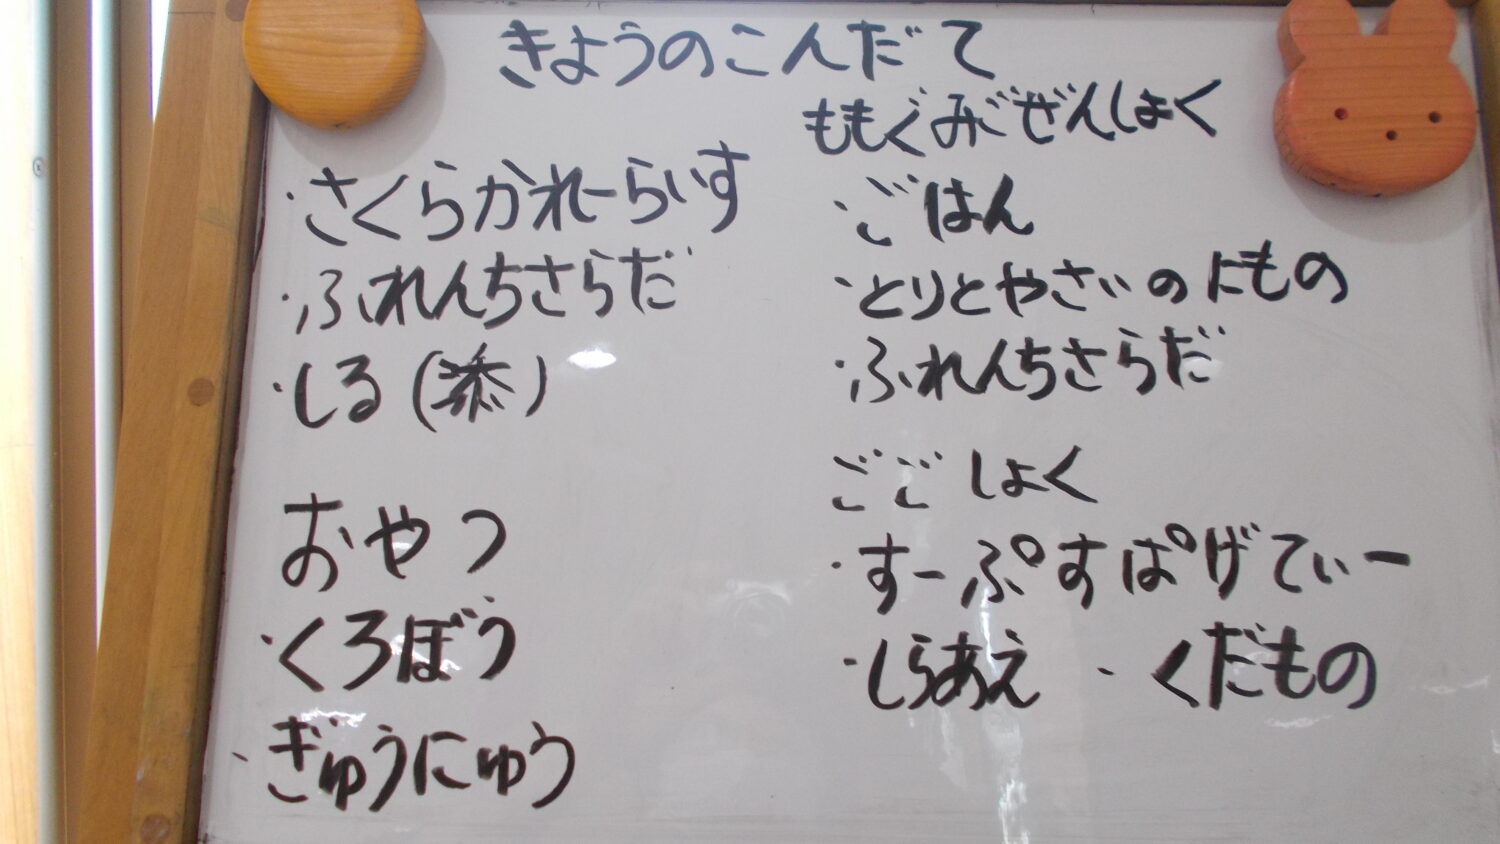 きょうのこんだて
・さくらかれーらいす
・ふれんちさらだ
・しる(添)
おやつ
・くろぼう
・ぎゅうにゅう
ももぐみごぜんしょく
・ごはん
・とりとやさいのにもの
・ふれんちさらだ
ごごしょく
・すーぷすぱげてぃー
・しらあえ ・くだもの